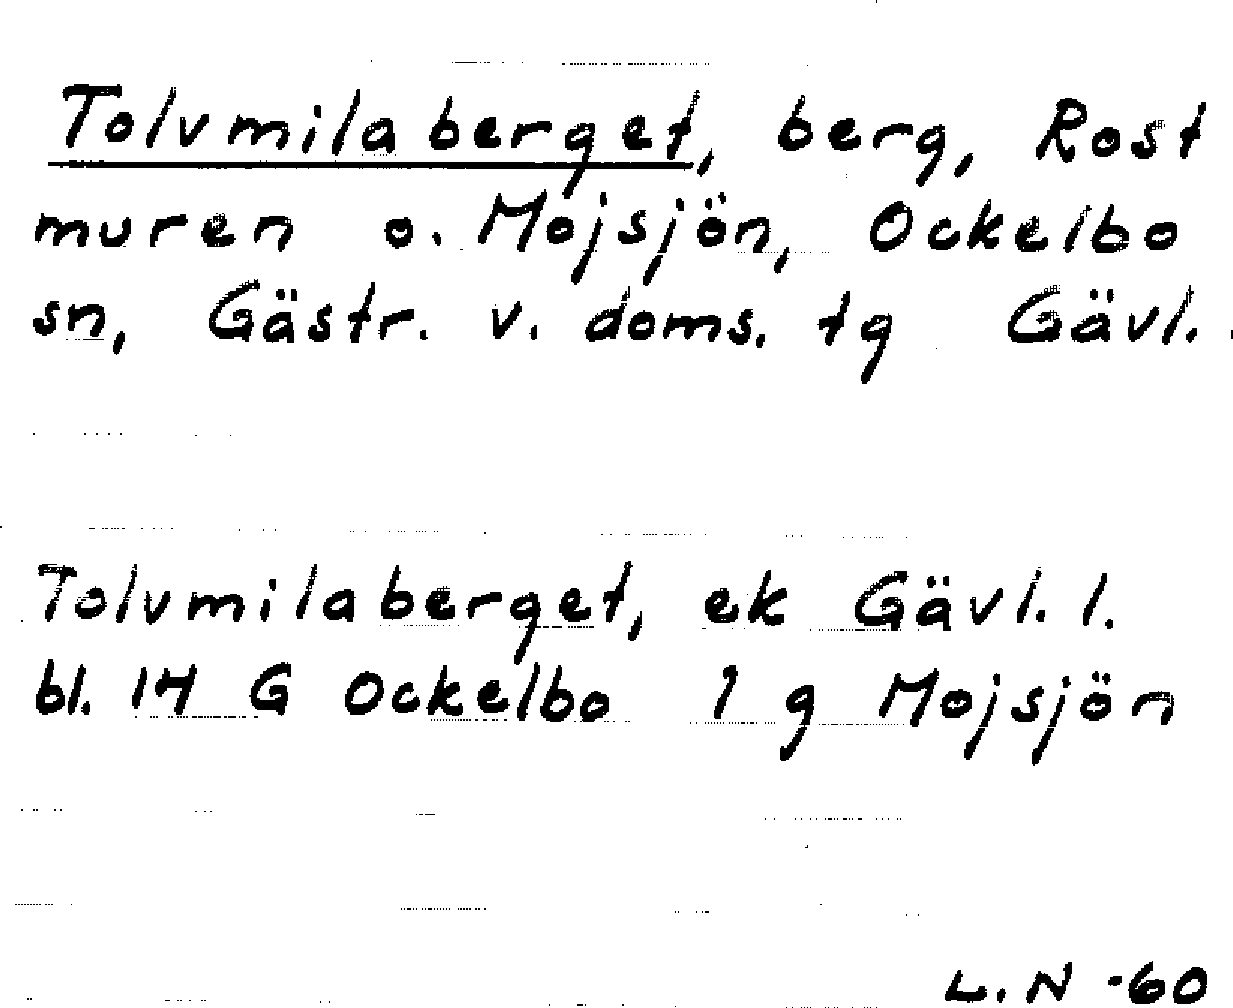 Tolvmilaberget, berg, Rost
muren o. Mojsjön, Ockelbo
sn, Gästr. v. doms. tg Gävl.
Tolvmilaberget, ek Gävl. l.
bl. 14 G Ockelbo 1 g Mojsjön
L.N -60